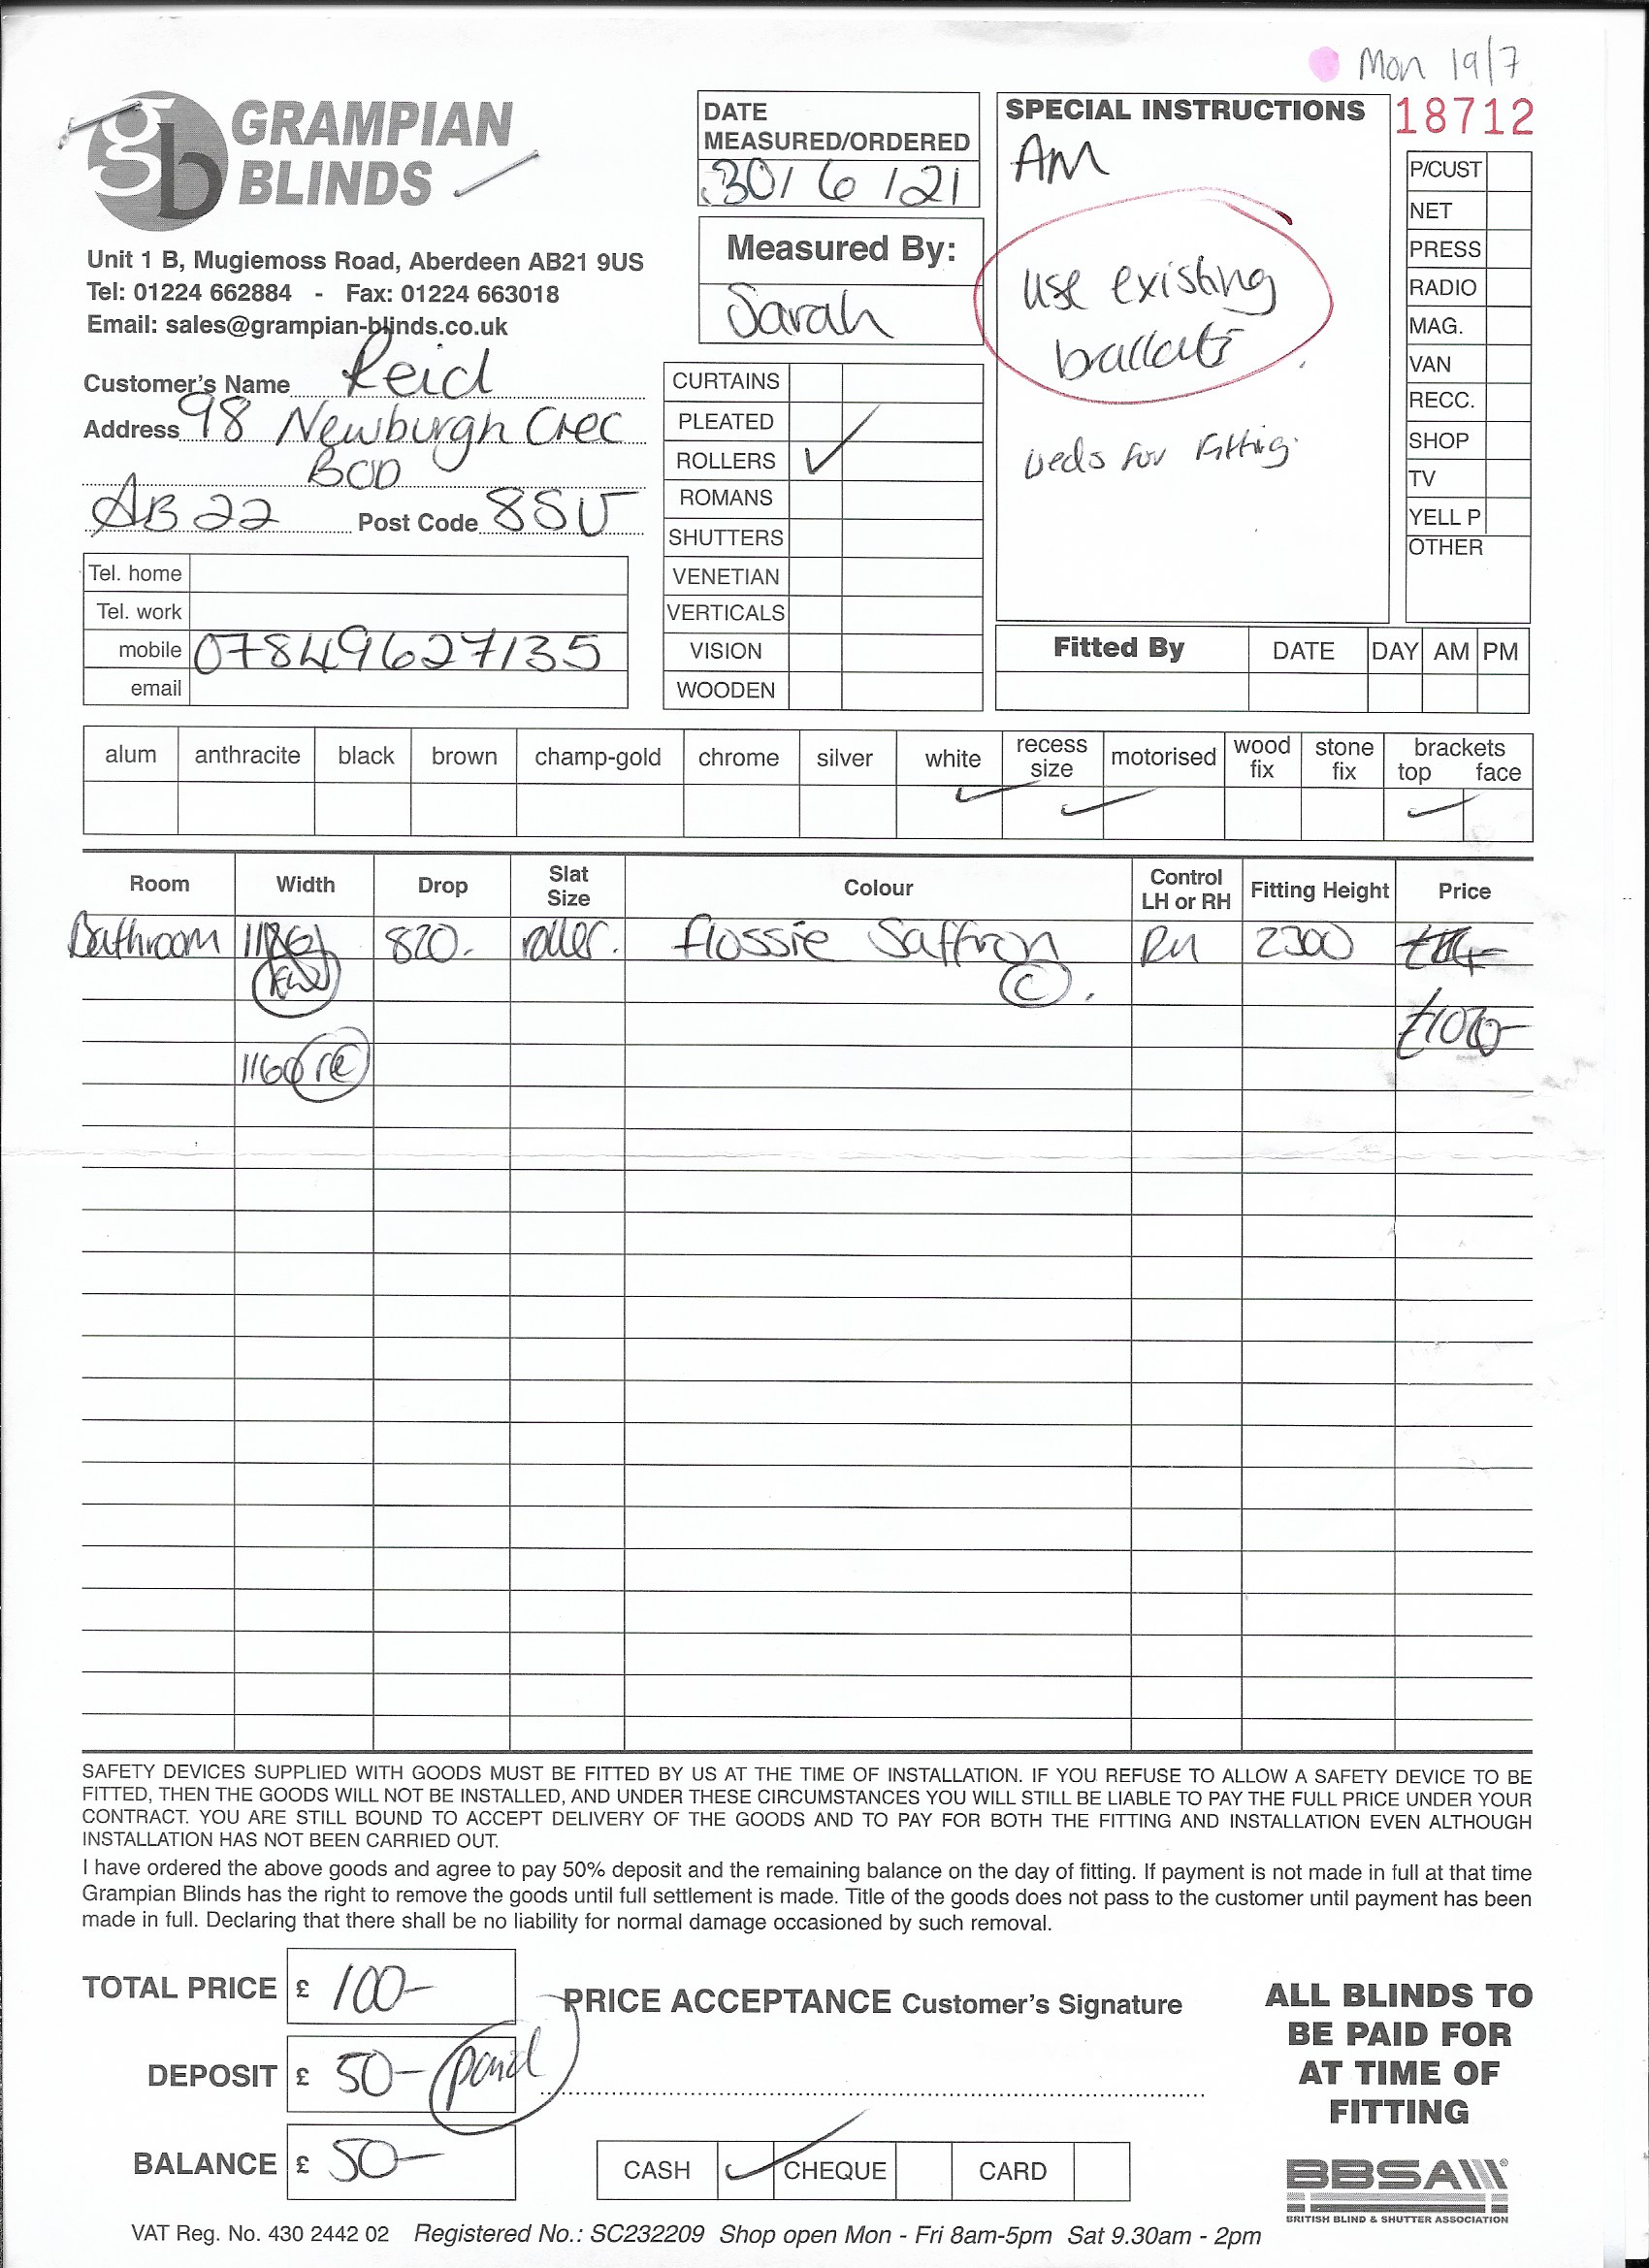 Mon 19/7
GRAMPIAN
BLINDS
Unit 1 B, Mugiemoss Road, Aberdeen AB21 9US
Tel: 01224 662884 - Fax: 01224 663018
Email: sales@grampian-blinds.co.uk
Customer's Name Reid
Address 98 Newburgh Cresc
BOD
AB22 Post Code 8SU
Tel. home
Tel. work
mobile 07849627135
email
DATE
MEASURED/ORDERED
30/6/21
Measured By:
Sarah
CURTAINS
PLEATED
ROLLERS ✓
ROMANS
SHUTTERS
VENETIAN
VERTICALS
VISION
WOODEN
SPECIAL INSTRUCTIONS
AM
use existing
brackets
Weds for Fitting
18712
P/CUST
NET
PRESS
RADIO
MAG.
VAN
RECC.
SHOP
TV
YELL P
OTHER
Fitted By DATE DAY AM PM
alum anthracite black brown champ-gold chrome silver white recess size motorised wood fix stone fix brackets top face
✓ ✓ ✓
Room Width Drop Slat Size Colour Control LH or RH Fitting Height Price
Bathroom 820. roller. flossie Saffron RH 2300
C.
£100-
1160 re
SAFETY DEVICES SUPPLIED WITH GOODS MUST BE FITTED BY US AT THE TIME OF INSTALLATION. IF YOU REFUSE TO ALLOW A SAFETY DEVICE TO BE
FITTED, THEN THE GOODS WILL NOT BE INSTALLED, AND UNDER THESE CIRCUMSTANCES YOU WILL STILL BE LIABLE TO PAY THE FULL PRICE UNDER YOUR
CONTRACT. YOU ARE STILL BOUND TO ACCEPT DELIVERY OF THE GOODS AND TO PAY FOR BOTH THE FITTING AND INSTALLATION EVEN ALTHOUGH
INSTALLATION HAS NOT BEEN CARRIED OUT.
I have ordered the above goods and agree to pay 50% deposit and the remaining balance on the day of fitting. If payment is not made in full at that time
Grampian Blinds has the right to remove the goods until full settlement is made. Title of the goods does not pass to the customer until payment has been
made in full. Declaring that there shall be no liability for normal damage occasioned by such removal.
TOTAL PRICE £ 100-
DEPOSIT £ 50- paid
BALANCE £ 50-
PRICE ACCEPTANCE Customer's Signature
CASH ✓ CHEQUE CARD
ALL BLINDS TO
BE PAID FOR
AT TIME OF
FITTING
BBSA
BRITISH BLIND & SHUTTER ASSOCIATION
VAT Reg. No. 430 2442 02 Registered No.: SC232209 Shop open Mon - Fri 8am-5pm Sat 9.30am - 2pm